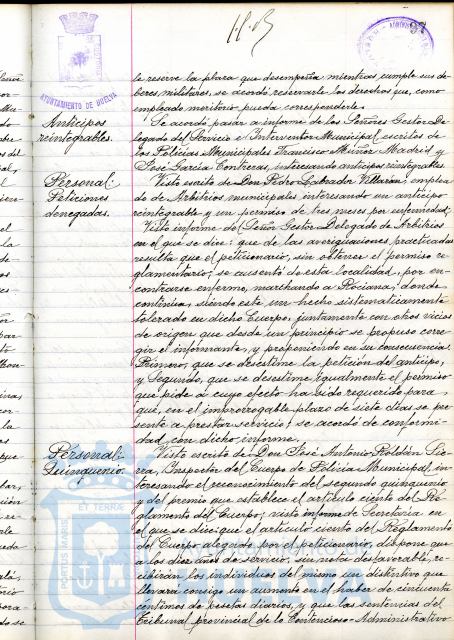 97
AYUNTAMIENTO DE HUELVA
le reserve la plaza que desempeña, mientras cumple sus de-
beres militares, se acordó reservarle los derechos que, como
empleado meritorio, pueda corresponderle.
Anticipos
reintegrables.
Se acordó pasar a informe de los Señores Gestor De-
legado del Servicio e Interventor Municipal escritos de
los Policías Municipales Francisco Muñoz Madrid y
José García Contreras, interesando anticipos reintegrables
Personal:
Peticiones
denegadas.
Visto escrito de Don Pedro Labrador Villarán, emplea-
do de Arbitrios municipales interesando un anticipo
reintegrable y un permiso de tres meses por enfermedad;
Visto informe del Señor Gestor Delegado de Arbitrios
en el que se dice: que de las averiguaciones practicadas
resulta que el peticionario, sin obtener el permiso re-
glamentario, se ausentó de esta localidad, por en-
contrarse enfermo, marchando a Rociana, donde
continúa, siendo este un hecho sistematicamente
tolerado en dicho Cuerpo, juntamente con otros vicios
de origen que desde un principio se propuso corre-
gir el informante, y proponiendo en su consecuencia:
Primero, que se desestime la petición del anticipo,
y Segundo, que se desestime igualmente el permiso
que pide a cuyo efecto ha sido requerido para
que, en el improrrogable plazo de siete días se pre-
sente a prestar servicio; se acordó de conformi-
dad con dicho informe.
Personal:
Quinquenio.
Visto escrito de Don José Antonio Roldán Sie-
rra, Inspector del Cuerpo de Policía Municipal, in-
teresando el reconocimiento del segundo quinquenio
y del premio que establece el artículo ciento del Re-
glamento del Cuerpo; visto informe de Secretaría en
el que se dice: que el artículo ciento del Reglamento
del Cuerpo alegado por el peticionario, dispone que
a los diez años de servicio, sin nota desfavorable, re-
cibirán los individuos del mismo un distintivo que
llevará consigo un aumento en el haber de cincuenta
céntimos de pesetas diarios, y que las sentencias del
Tribunal provincial de lo Contencioso-Administrativo
PORTUS MARIS ET TERRÆ